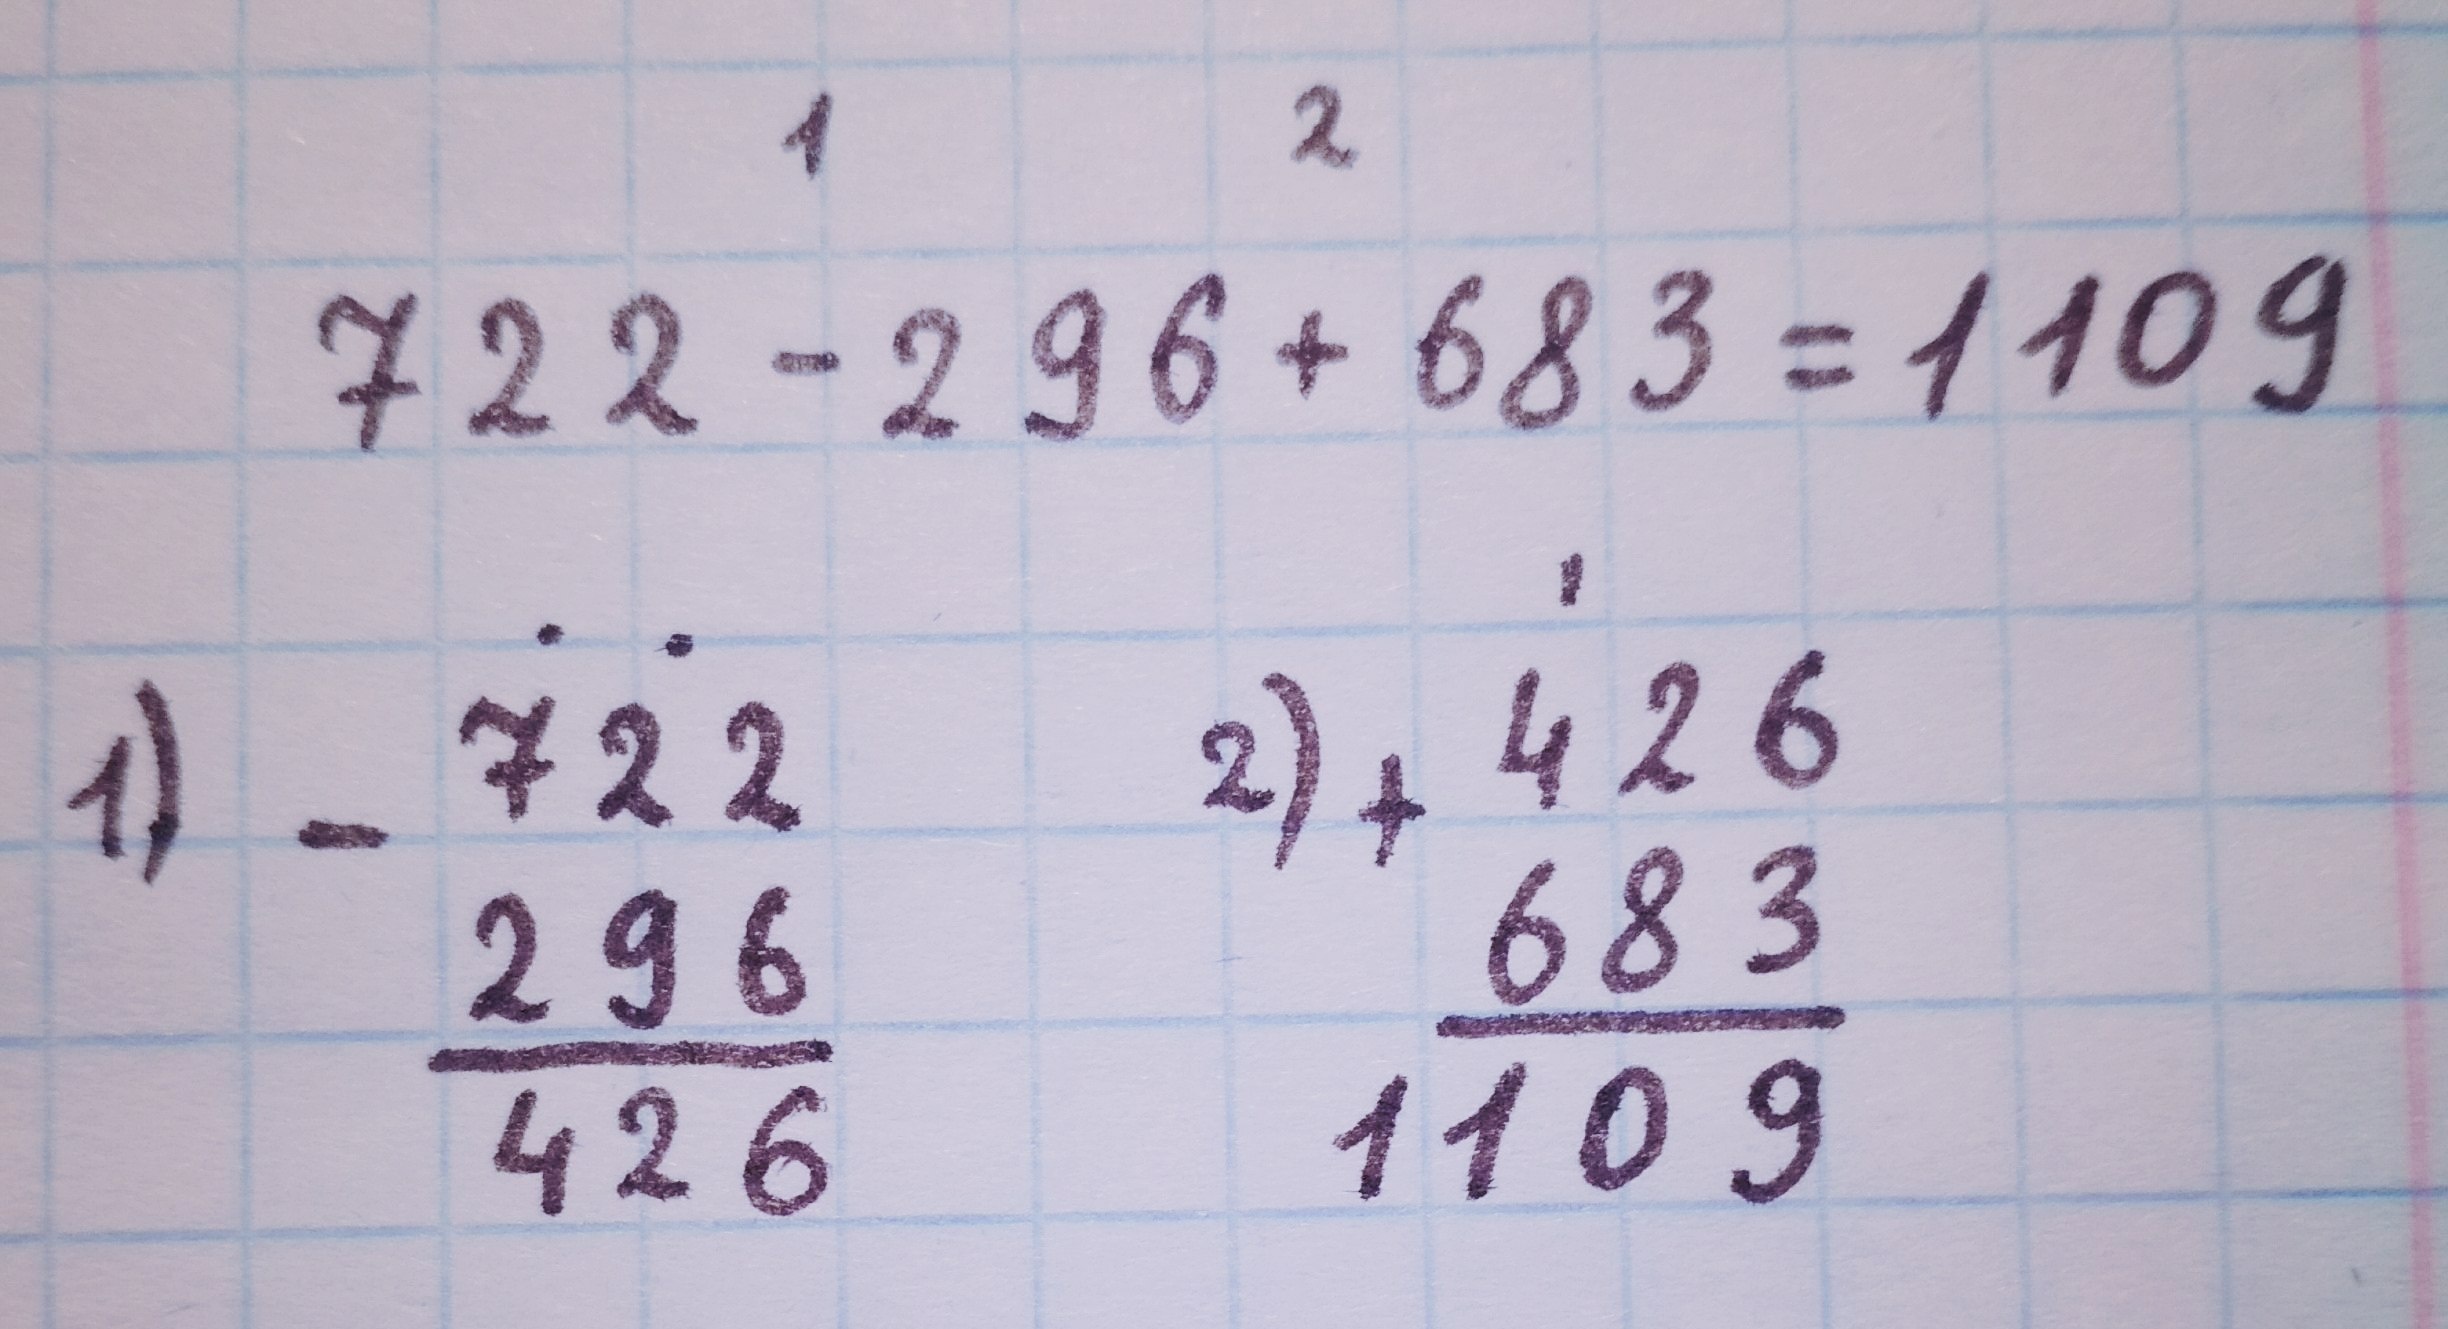 1 2
722-296+683=1109
1) - 722
296
426
2) + 426
1
683
1109